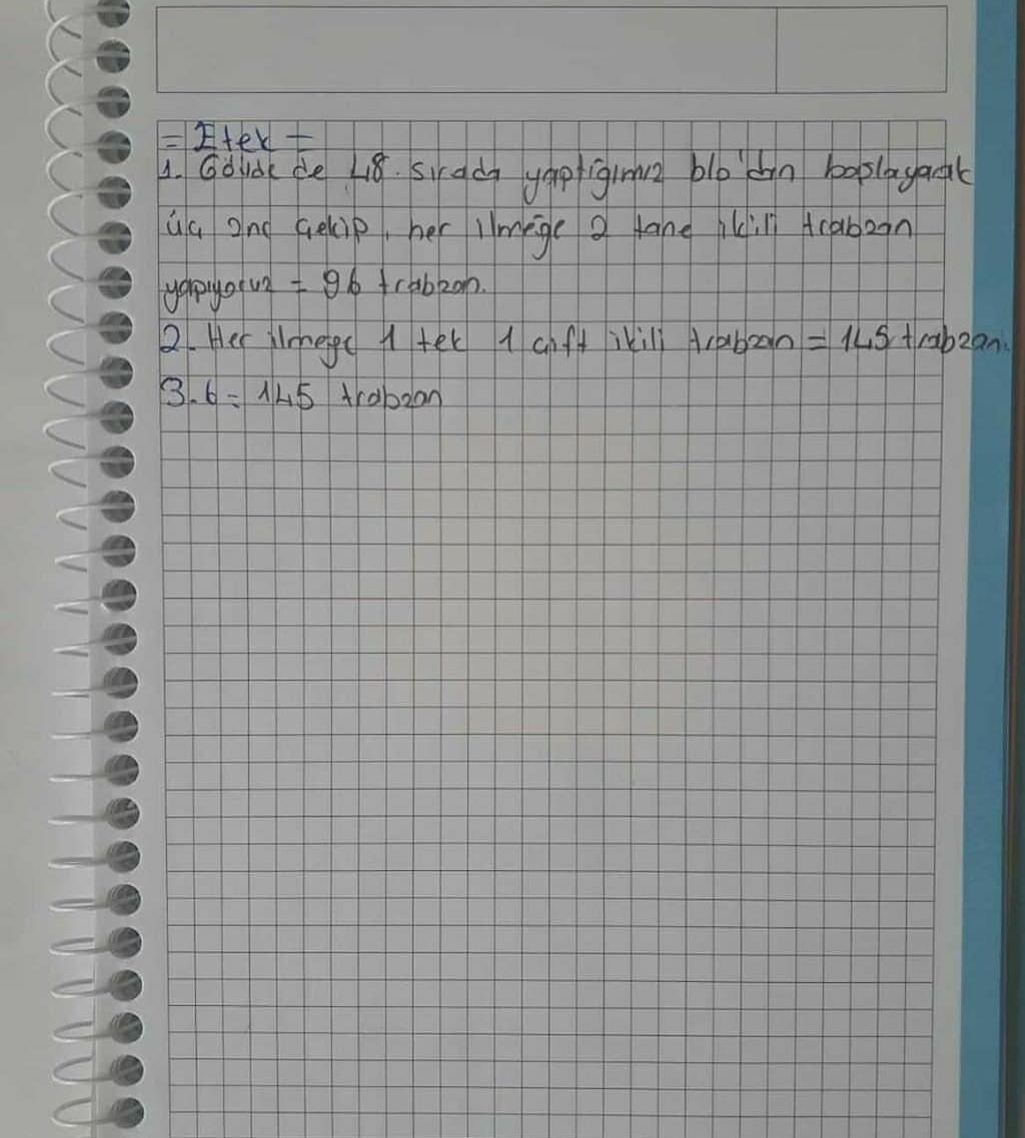 = Etek =
1. Gövde de 48. sırada yaptığımız blo'dan başlayarak
üç znc çekip, her ilmeğe 2 tane ikili trabzan
yapıyoruz = 96 trabzan.
2. Her ilmeğe 1 tek 1 çift ikili trabzan = 145 trabzan.
3-6 = 145 trabzan